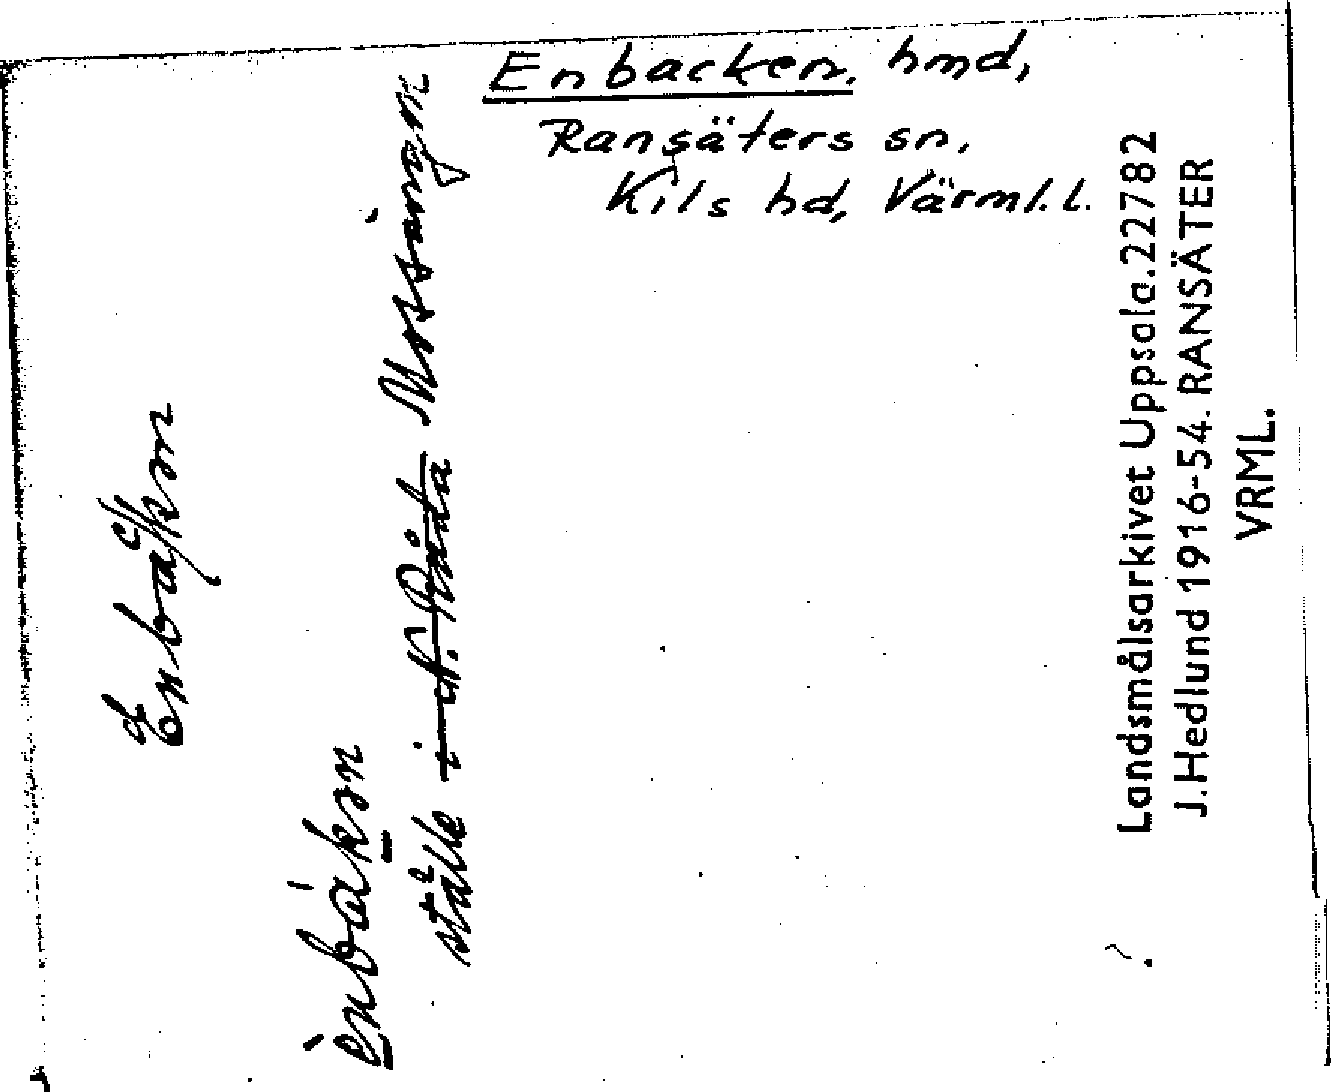 Enbacken, hmd,
Ransäters sn,
Kils hd, Värml. l.
Enbakn
ènbákn
ställe i N. Råda Mossängn
Landsmålsarkivet Uppsala. 22782
J. Hedlund 1916-54. RANSÄTER
VRML.